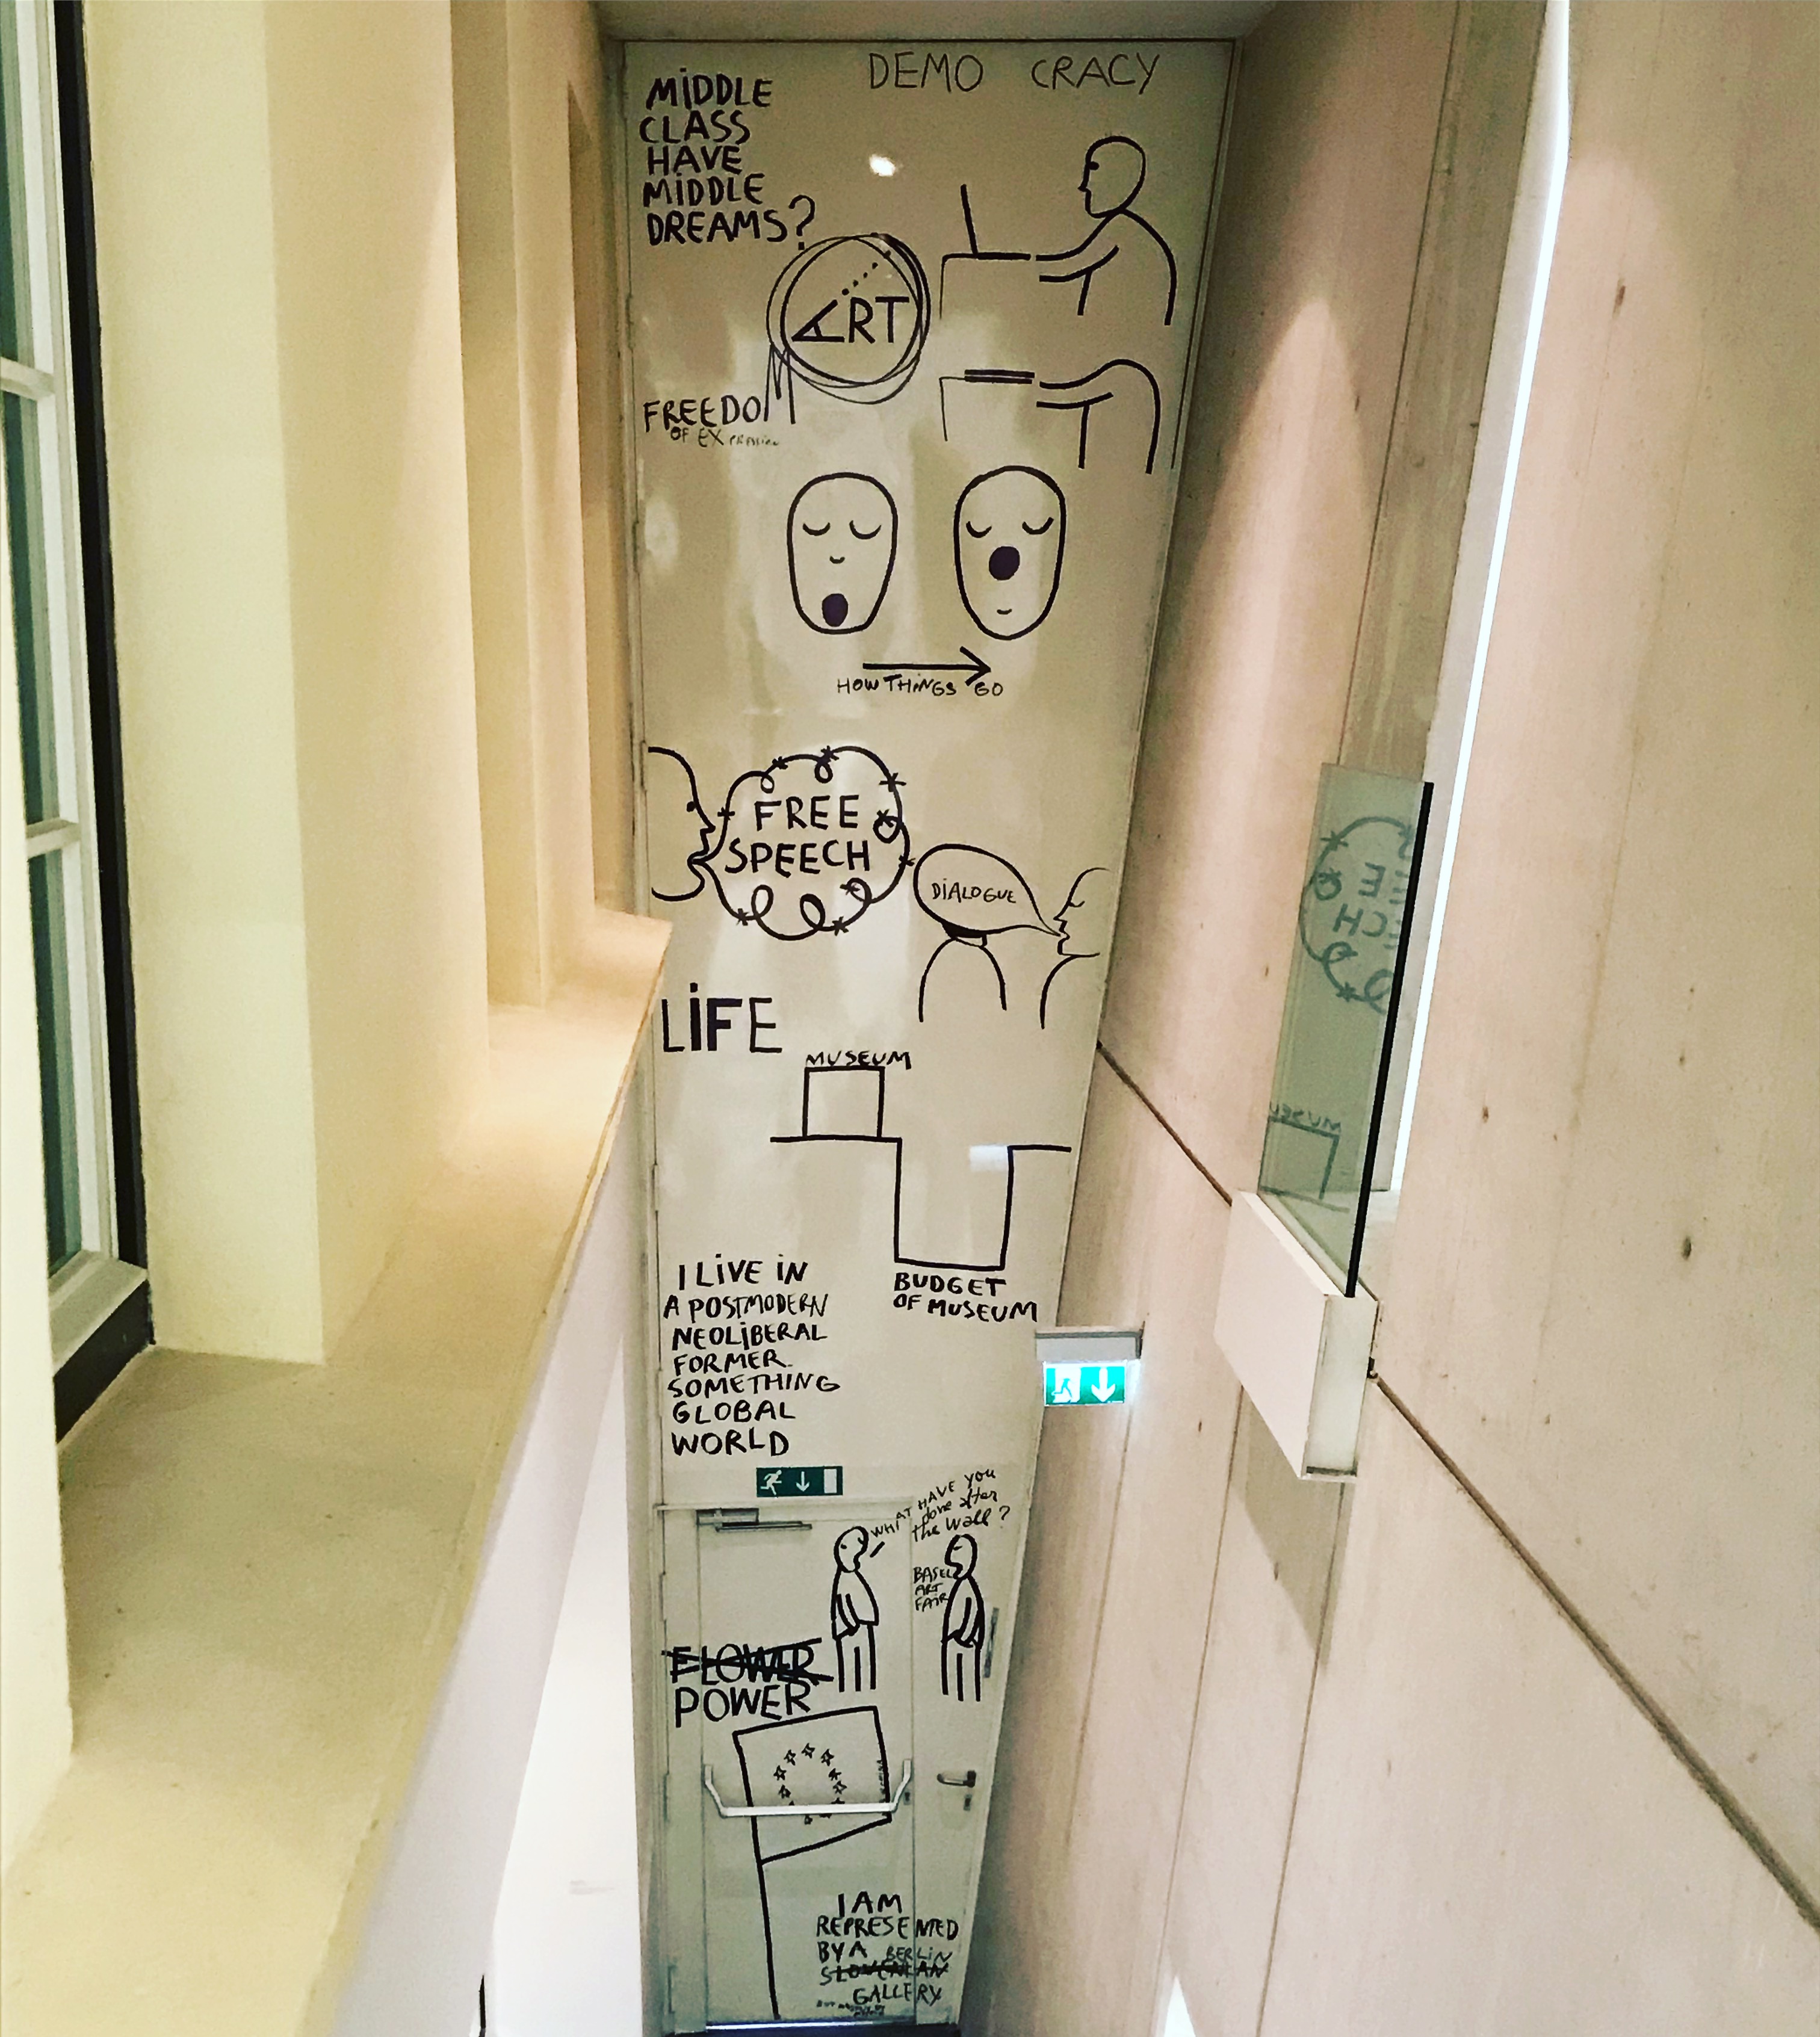 DEMO CRACY
MIDDLE
CLASS
HAVE
MIDDLE
DREAMS?
ART
FREEDOM
OF EX
HOW THINGS GO
FREE
SPEECH
DIALOGUE
LIFE
MUSEUM
BUDGET
OF MUSEUM
I LIVE IN
A POSTMODERN
NEOLIBERAL
FORMER
SOMETHING
GLOBAL
WORLD
WHAT HAVE YOU
done after
the wall?
BASEL
ART
FAIR
FLOWER
POWER
I AM
REPRESENTED
BY A BERLIN
SLOVENIAN
GALLERY